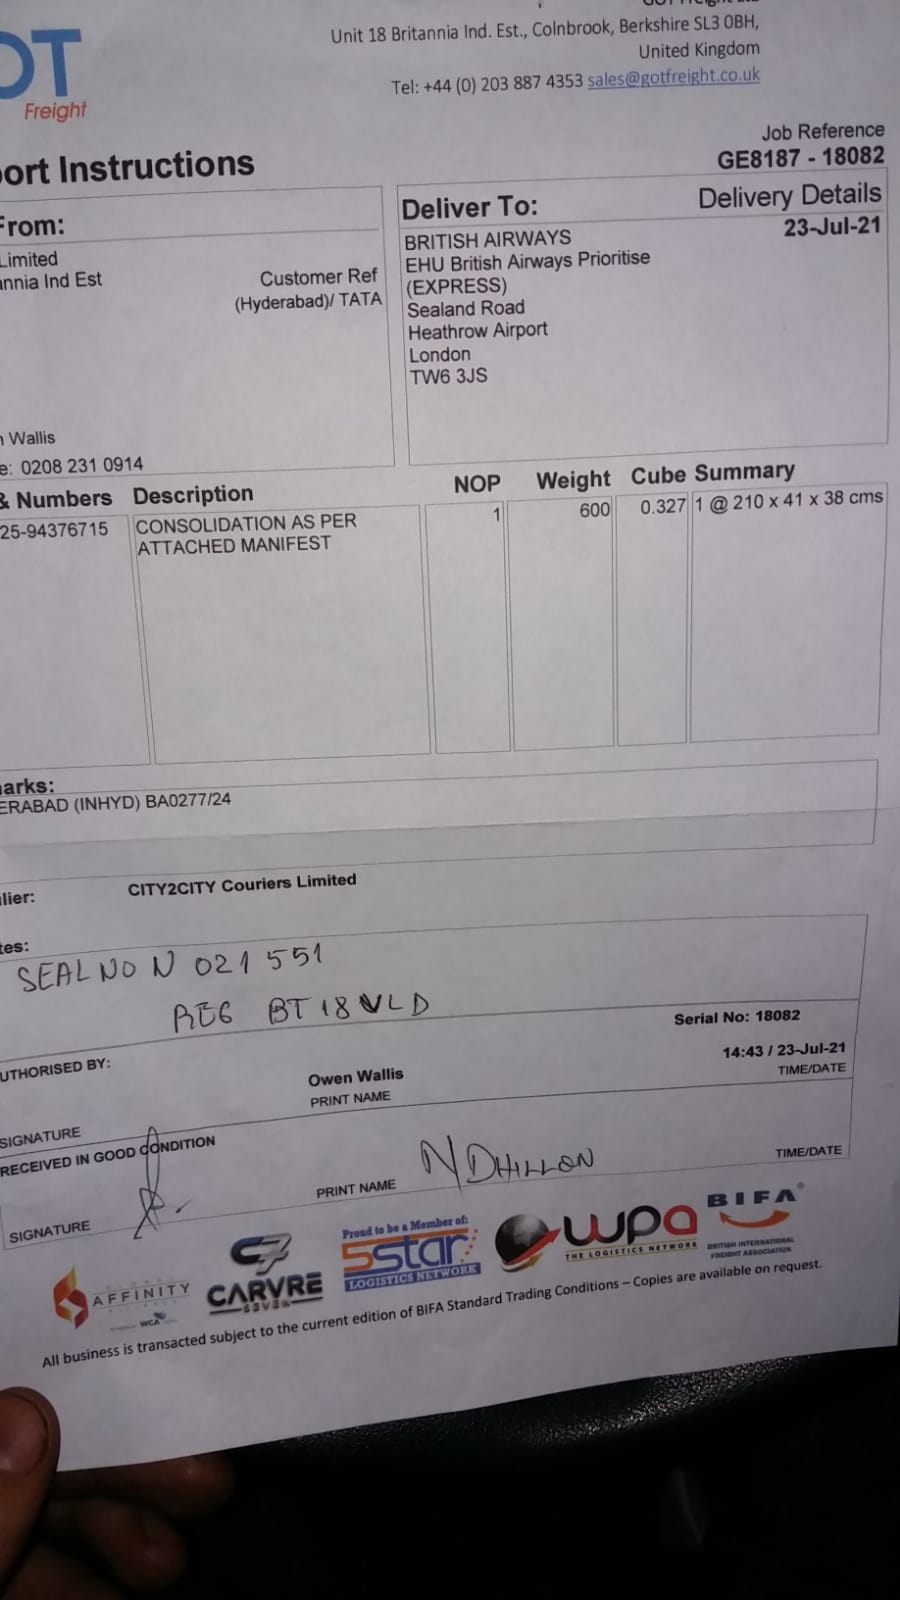 OT
Freight
Unit 18 Britannia Ind. Est., Colnbrook, Berkshire SL3 0BH,
United Kingdom
Tel: +44 (0) 203 887 4353 sales@gotfreight.co.uk
ort Instructions
Job Reference
GE8187 - 18082
From:
Limited
annia Ind Est
Customer Ref
(Hyderabad)/ TATA
n Wallis
e: 0208 231 0914
Deliver To:
Delivery Details
23-Jul-21
BRITISH AIRWAYS
EHU British Airways Prioritise
(EXPRESS)
Sealand Road
Heathrow Airport
London
TW6 3JS
& Numbers Description NOP Weight Cube Summary
25-94376715 CONSOLIDATION AS PER 1 600 0.327 1 @ 210 x 41 x 38 cms
ATTACHED MANIFEST
arks:
ERABAD (INHYD) BA0277/24
lier: CITY2CITY Couriers Limited
tes:
SEAL NO N 021551
REG BT18 VLD
Serial No: 18082
UTHORISED BY:
Owen Wallis
14:43 / 23-Jul-21
SIGNATURE PRINT NAME TIME/DATE
RECEIVED IN GOOD CONDITION
N DHILLON
SIGNATURE PRINT NAME TIME/DATE
AFFINITY
WCA
C7
CARVRE
SEVEN
Proud to be a Member of:
5star
LOGISTICS NETWORK
wpa
THE LOGISTICS NETWORK
BIFA
BRITISH INTERNATIONAL
FREIGHT ASSOCIATION
All business is transacted subject to the current edition of BIFA Standard Trading Conditions – Copies are available on request.